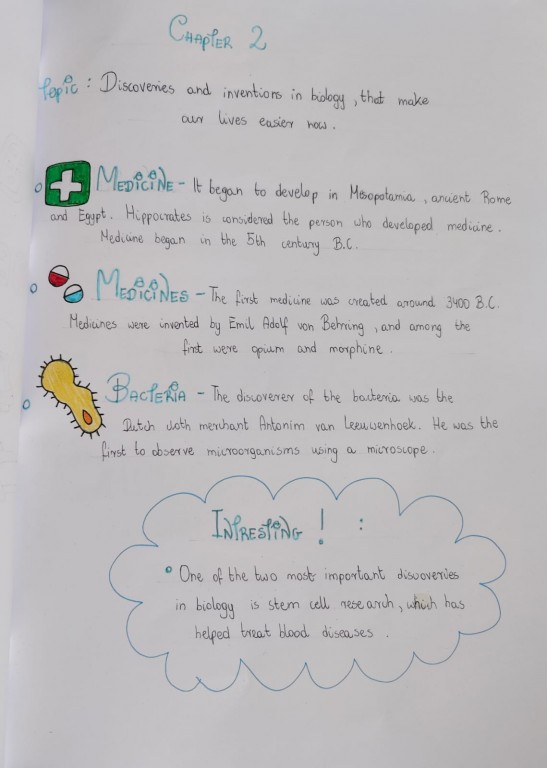 Chapter 2
Topic : Discoveries and inventions in biology, that make
our lives easier now.
Medicine - It began to develop in Mesopotamia, ancient Rome
and Egypt. Hippocrates is considered the person who developed medicine.
Medicine began in the 5th century B.C.
Medicines - The first medicine was created around 3400 B.C.
Medicines were invented by Emil Adolf von Behring, and among the
first were opium and morphine.
Bacteria - The discoverer of the bacteria was the
Dutch cloth merchant Antonim van Leeuwenhoek. He was the
first to observe microorganisms using a microscope.
Intresting ! :
One of the two most important discoveries
in biology is stem cell research, which has
helped treat blood diseases.